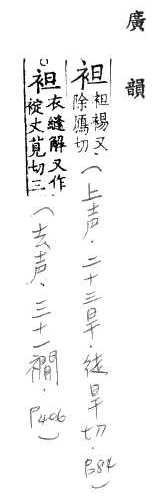 廣韻
袒袒裼又除鴈切(上声．二十三旱．徒旱切．P284)
袒衣縫解又作䘺丈莧切三(去声．三十一襉．P406)